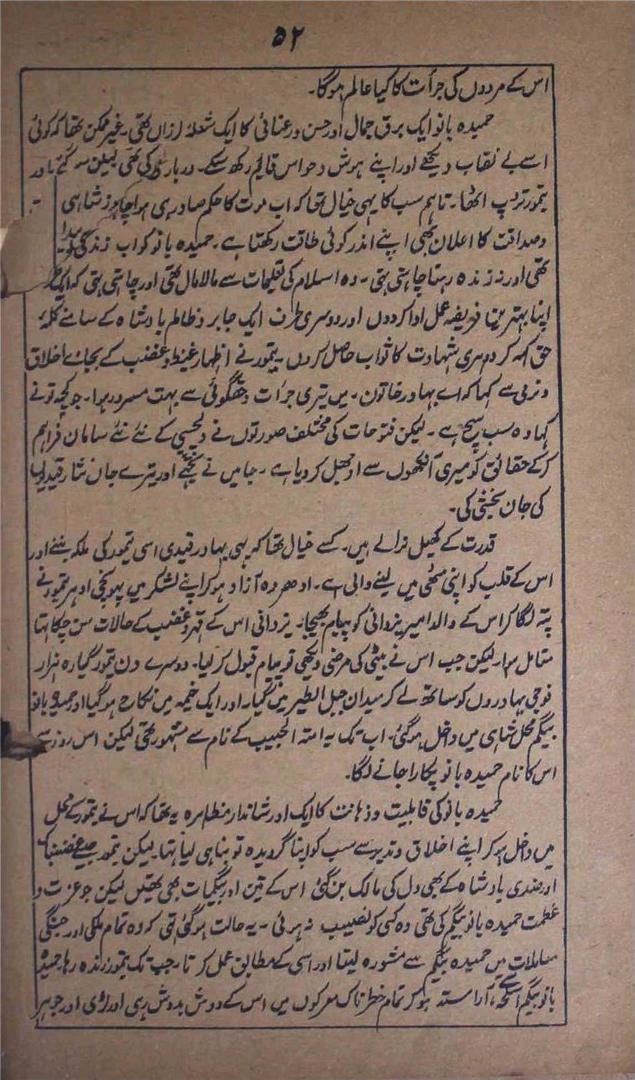 ۵۲
اس کے مردوں کی جرأت کا کیا عالم ہوگا۔
حمیدہ بانو ایک برق جمال اور حسن و رعنائی کا ایک شعلۂ لرزاں تھی۔ غیر ممکن تھا کہ کوئی
اسے بے نقاب دیکھے اور اپنے ہوش و حواس قائم رکھ سکے۔ درباری بھی
تیمور تڑپ اٹھا۔ تاہم سب کا یہی خیال تھا کہ اب موت کا حکم صادر ہی ہوا چاہتا
وصداقت کا اعلان بھی اپنے اندر کوئی طاقت رکھتا ہے۔ حمیدہ بانو کو اب زندگی
تھی اور نہ زندہ رہنا چاہتی تھی۔ وہ اسلام کی تعلیمات سے مالامال تھی اور چاہتی تھی کہ ایک
اپنا بہترین فریضہ عمل ادا کردوں اور دوسری طرف ایک جابر و ظالم بادشاہ کے سامنے کلمۂ
حق کہہ کر دوسری شہادت کا ثواب حاصل کروں۔ تیمور نے اظہار غیظ و غضب کے بجائے اخلاق
و نرمی سے کہا کہ اے بہادر خاتون۔ میں تیری جرأت و حقگوئی سے بہت مسرور ہوا۔ جو کچھ تو نے
کہا وہ سب سچ ہے۔ لیکن فتوحات کی مختلف صورتوں نے دلچسپی کے نئے نئے سامان فراہم
کرکے حقائق کو میری آنکھوں سے اوجھل کردیا ہے۔ جا میں نے تجھے اور تیرے جان نثار قیدیوں
کی جان بخشی کی۔
قدرت کے کھیل نرالے ہیں۔ کسے خیال تھا کہ یہی بہادر قیدی اسی تیمور کی ملکہ بننے اور
اس کے قلب کو اپنی مٹھی میں لینے والی ہے۔ ادھر وہ آزاد ہو کر اپنے لشکر میں پہونچی ادھر تیمور نے
پتہ لگا کر اس کے والد امیر یزدانی کو پیام بھیجا۔ یزدانی اس کے قہر و غضب کے حالات سن چکا تھا
متامل ہوا۔ لیکن جب اس نے بیٹی کی مرضی دیکھی تو پیام قبول کرلیا۔ دوسرے دن تیمور گیارہ ہزار
فوجی بہادروں کو ساتھ لے کر میدان جبل الطیر میں گیا۔ اور ایک خیمہ میں نکاح ہوگیا اور حمیدہ بانو
بیگم محل شاہی میں داخل ہوگئی۔ اب تک یہ امتہ الحبیب کے نام سے مشہور تھی لیکن اس روز سے
اس کا نام حمیدہ بانو پکارا جانے لگا۔
حمیدہ بانو کی قابلیت و ذہانت کا ایک اور شاندار مظاہرہ یہ تھا کہ اس نے تیمور کے محل
میں داخل ہو کر اپنے اخلاق و تدبر سے سب کو اپنا گرویدہ تو بنا ہی لیا تھا۔ لیکن تیمور جیسے غضبناک
اور ضدی بادشاہ کے بھی دل کی مالک بن گئی اس کے تین اور بیگمیات بھی تھیں لیکن جو عزت و
عظمت حمیدہ بانو بیگم کی تھی وہ کسی کو نصیب نہ ہوئی۔ یہ حالت ہوگئی تھی کہ وہ تمام ملکی اور جنگی
معاملات میں حمیدہ بیگم سے مشورہ لیتا اور اسی کے مطابق عمل کرتا۔ جب تک تیمور زندہ رہا حمیدہ
بانو بیگم اسلحہ آراستہ ہو کر تمام خطرناک معرکوں میں اس کے دوش بدوش رہی اور لڑی اور جوہر